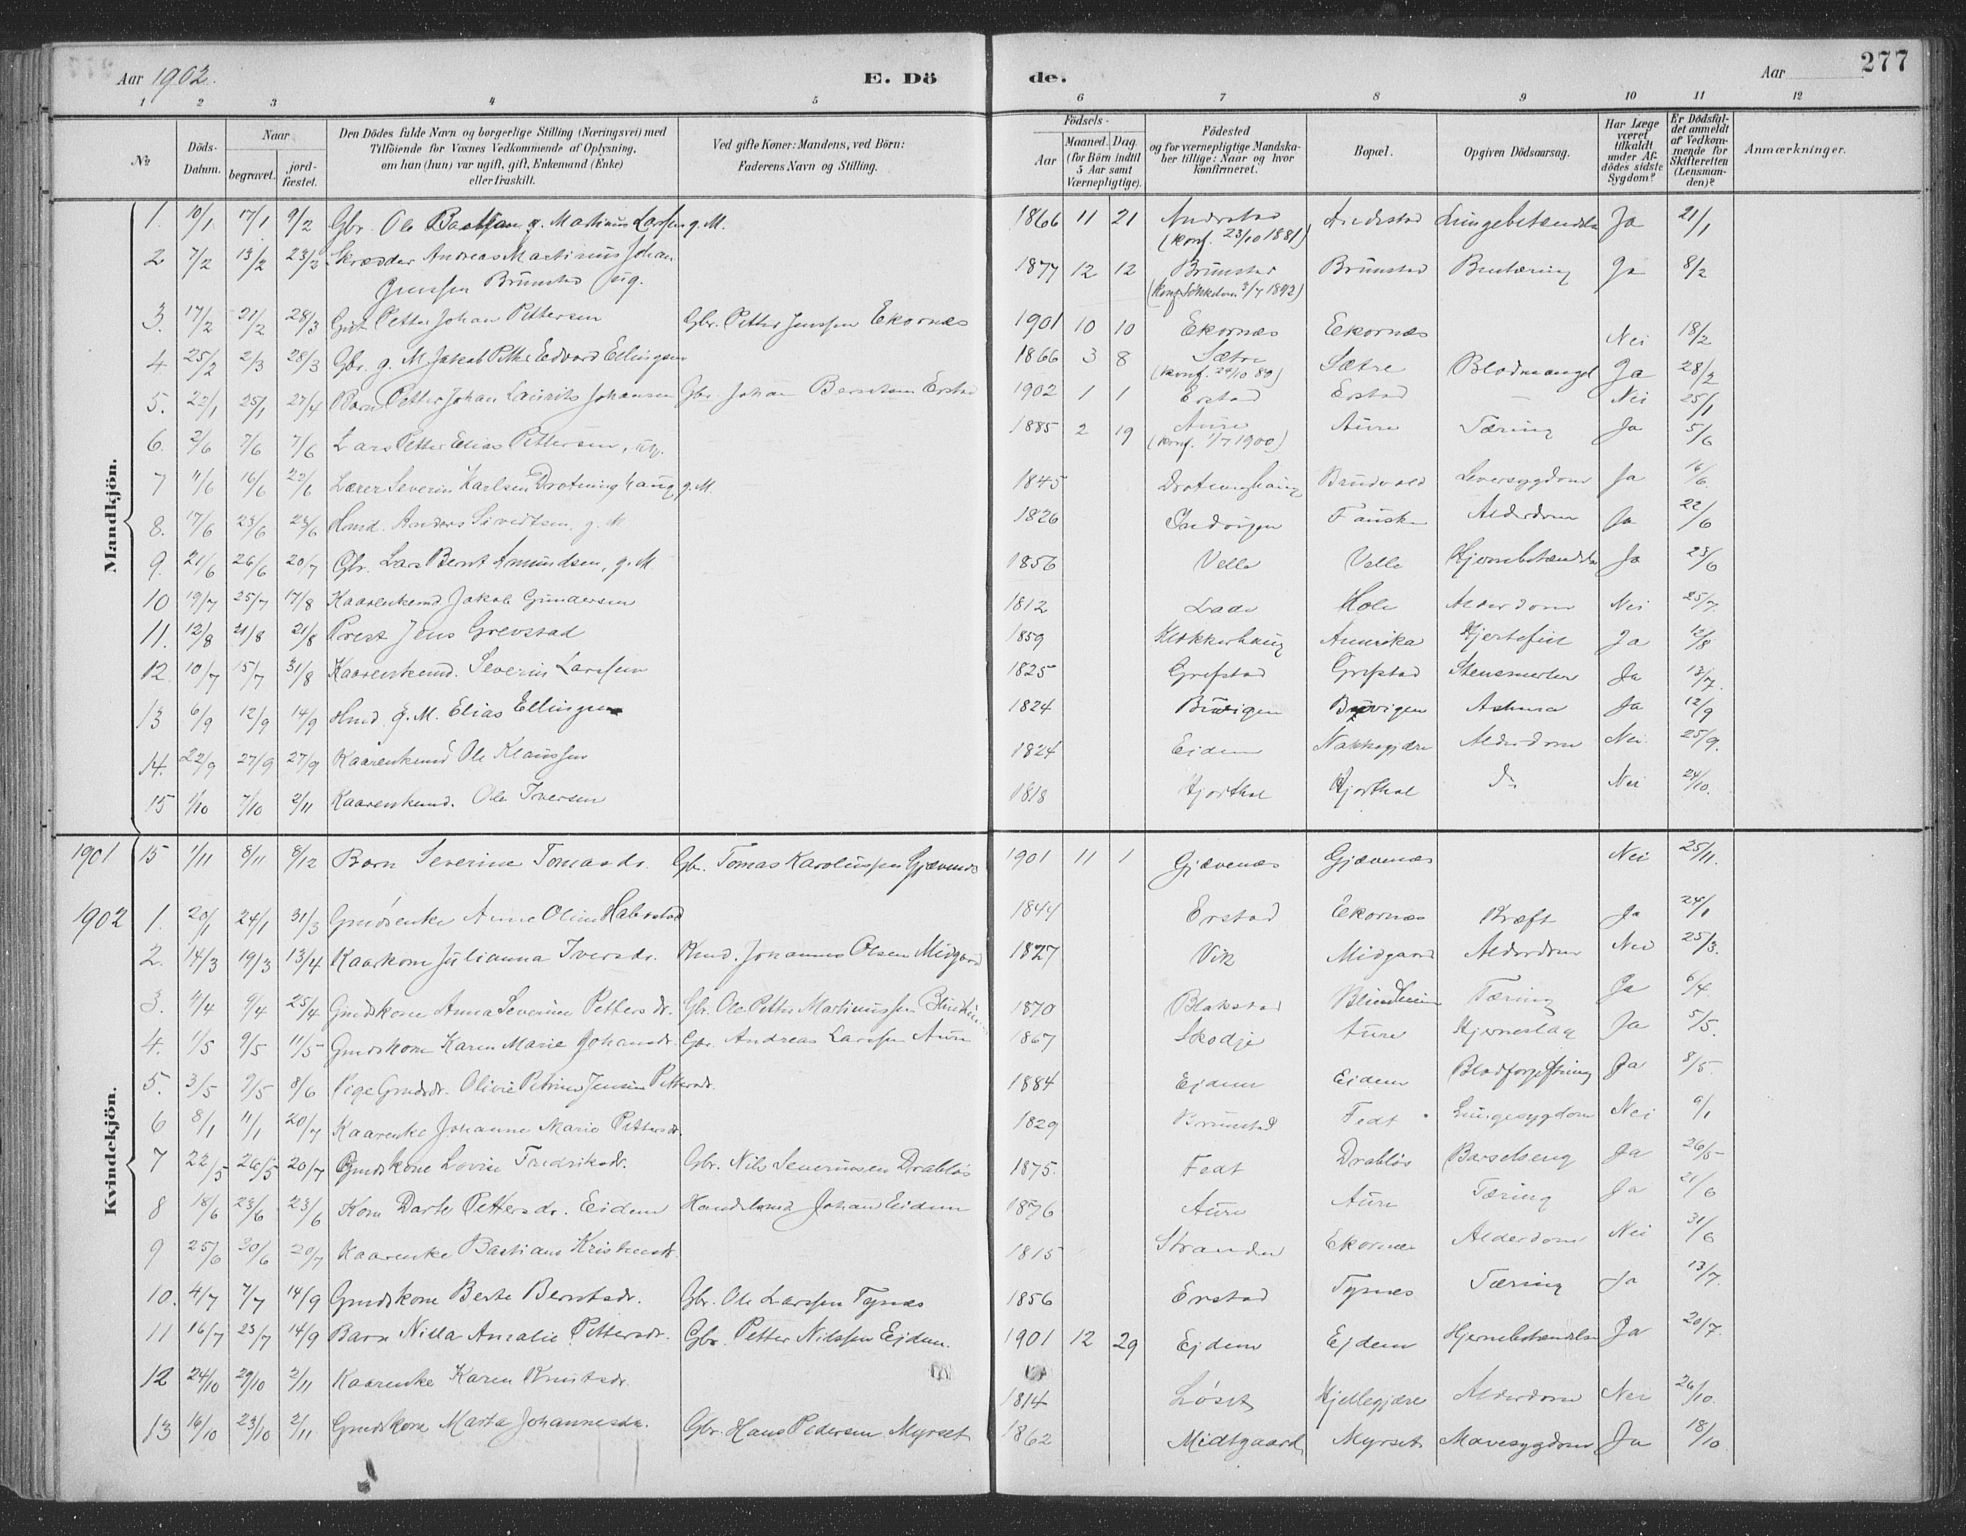 Aar 1902. E. Dö de. Aar 277
1 2 3 4 5 6 7 8 9 10 11 12
No Döds-Datum. Naar begravet. jord-fæstet. Den Dödes fulde Navn og borgerlige Stilling (Næringsvei) med Tilföiende for Voxnes Vedkommende af Oplysning, om han (hun) var ugift, gift, Enkemand (Enke) eller fraskilt. Ved gifte Koner: Mandens, ved Börn: Faderens Navn og Stilling. Födsels- Aar Maaned. Dag. (for Börn indtil 5 Aar samt Værnepligtige). Födested og for værnepligtige Mandska-ber tillige: Naar og hvor Konfirmeret. Bopæl. Opgiven Dödsaarsag. Har Læge været tilkaldt under Af-dödes sidste Sygdom? Er Dödsfal-det anmeldt af Vedkom-mende for Skifteretten (Lensman-den)? Anmærkninger.
Mandkjön.
1. 10/1 17/1 9/2 Gbr. Ole g. Martinus Larssen g. M. 1866 11 21 Andestad Andestad Lungebetændelse Ja 21/1
(konf. 23/10 1881)
2 7/2 13/2 23/3 Skræder Andreas Martinus Johan 1877 12 12 Brunstad Brunstad Ja 8/2
Jenssen Brunstad ug. (konf. 3/7 1892)
3. 17/2 21/2 28/3 Gut Petter Johan Pettersen Gbr. Petter Jenssen Ekornæs 1901 10 10 Ekornæs Ekornæs Nei 18/2
4 25/2 2/3 28/3 Gbr. g. M. Jakob Petter Edvard Ellingsen 1866 3 8 Sætre Sætre Blodmangel Ja 28/2
5. 22/1 25/1 27/4 Barn Petter Johan Laurits Johansen Gbr. Johan Berntsen Erstad 1902 1 1 Erstad Erstad — Nei 25/1
6. 2/6 7/6 7/6 Lars Petter Elias Pettersen, ug. 1885 2 19 Aure Aure Tæring Ja 5/6
(konf. 1/7 1900)
7 11/6 16/6 22/6 Lærer Severin Karlsen Drotninghaug g. M. 1845 Drotninghaug Brudevold Leversygdom Ja 16/6
8. 17/6 23/6 23/6 Hmd. Anders Sivertsen, g. M 1826 Indvigen Fauske Alderdom Ja 22/6
9. 21/6 26/6 20/7 Gbr. Lars Bernt Amundsen, g. M 1856 Velle Velle Hjernebetændelse Ja 23/6
10 19/7 25/7 17/8 Kaarenkemd Jakob Gundersen 1812 Lade Hole Alderdom Nei 25/7.
11. 12/8 21/8 21/8 Prest Jens Grevstad 1859 Klokkerhaug Amerika Hjertefeil Ja 12/8
12. 10/7 15/7 31/8 Kaarenkemd. Severin Larssen 1825 Grefstad Grefstad Stensmerter Ja 13/7.
13 6/9 12/9 14/9 Hmd. g. M. Elias Ellingsen 1824 Buvigen Buvigen Asthma Ja 12/9
14. 22/9 27/9 27/9 Kaarenkemd Ole Klaussen 1824 Eidem Nakkegjære Alderdom Nei. 25/9.
15 1/10 7/10 2/11 Kaarenkemd. Ole Iversen 1818 Hjorthol Hjorthol do Nei 24/10.
Kvindekjön.
1901 15 1/11 8/11 8/12 Barn Severine Tomasdr. Gbr. Tomas Karolussen Gjævenes 1901 11 1 Gjævenæs Gjævenæs Nei 25/11.
1902 1. 20/1 24/1 31/3 Gmdsenke Anne Oline Haberstad 1844 Erstad Ekornæs Kræft Ja 24/1
2. 14/3 19/3 13/4 Kaarkone Julianna Iversdr. Kmd. Johannes Olsen Midgaard 1827 Vik Midgaard Alderdom Nei 25/3.
3. 4/4 9/4 25/4 Gmdskone Anna Severine Pettersdr. Gbr. Ole Petter Martinussen Blindheim 1870 Blakstad Blindheim Tæring Ja 6/4.
4. 1/5 9/5 11/5 Gmdskone Karen Marie Johansdr. Gbr. Andreas Larssen Aure 1867 Skodje Aure Hjerneslag Ja 5/5.
5. 3/5 9/5 8/6 Pige Gmdsdr. Olivie Petrine Jensine Pettersdr. 1884 Ejdem Eidem Blodforgiftning Ja 8/5.
6 8/1 11/1 20/7 Kaarenke Johanne Marie Pettersdr. 1829 Brunstad Fedt Lungesygdom Nei 9/1
7 22/5 26/5 20/7 Gmdskone Lovise Fredriksdr. Gbr. Nils Severinsen Drabløs 1875. Fedt Drabløs Barselseng Ja 26/5
8 18/6 23/6 23/6 Kone Darte Pettersdr. Eidem Handelsmd Johan Eidem 1876 Aure Aure Tæring Ja 21/6
9 25/6 30/6 20/7 Kaarenke Bastiane Kristensdr. 1815 Stranden Ekornæs Alderdom Nei 31/6
10. 4/7 7/7 14/9 Gmdskone Berte Berntsdr. Gbr. Ole Larssen Tynæs 1856 Erstad Tynæs Tæring Ja 13/7.
11 16/7 23/7 14/9 Barn Nilla Amalie Pettersdr. Gbr. Petter Nilssen Ejdem. 1901 12 29 Ejdem Ejdem Hjernebetændelse Ja 20/7.
12 24/10 29/10 2/11 Kaarenke Karen Knutsdr. 1814 Løset Hjellegjære Alderdom Nei 26/10.
13 16/10 23/10 2/11 Gmdskone Marta Johannesdr. Gbr. Hans Pedersen Myrset 1862 Midtgaard Myrset Mavesygdom Ja 18/10